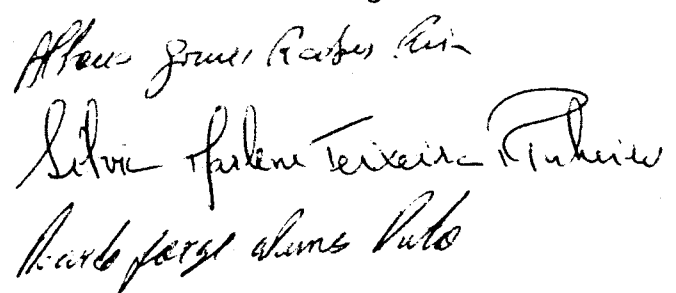 Gomes
Silvia Marlene Teixeira Pinheiro
Ricardo Jorge Nunes Pinto